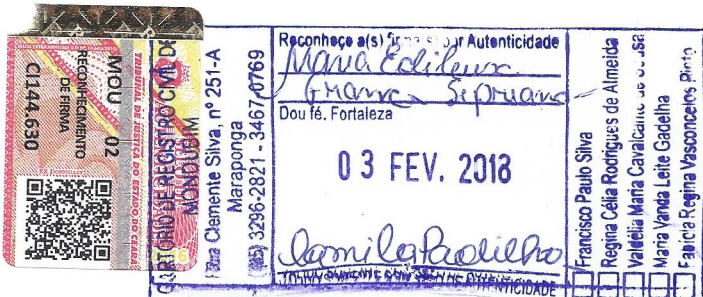 MOU 02
RECONHECIMENTO
DE FIRMA
CI144.630
TRIBUNAL DE JUSTIÇA DO ESTADO DO CEARÁ
CARTÓRIO DE REGISTRO CIVIL DE
MONDUBIM
Rua Clemente Silva, nº 251-A
Maraponga
(85) 3296-2821 - 3467-0769
Reconheço a(s) firma(s) por Autenticidade
Maria Edileuza
Dou fé. Fortaleza
03 FEV. 2018
Camila Padilha
AUTENTICIDADE
Francisco Paulo Silva
Regina Célia Rodrigues de Almeida
Valdélia Maria Cavalcante de Sousa
Maria Vanda Leite Gadelha
Fabíola Regina Vasconcelos Pinto